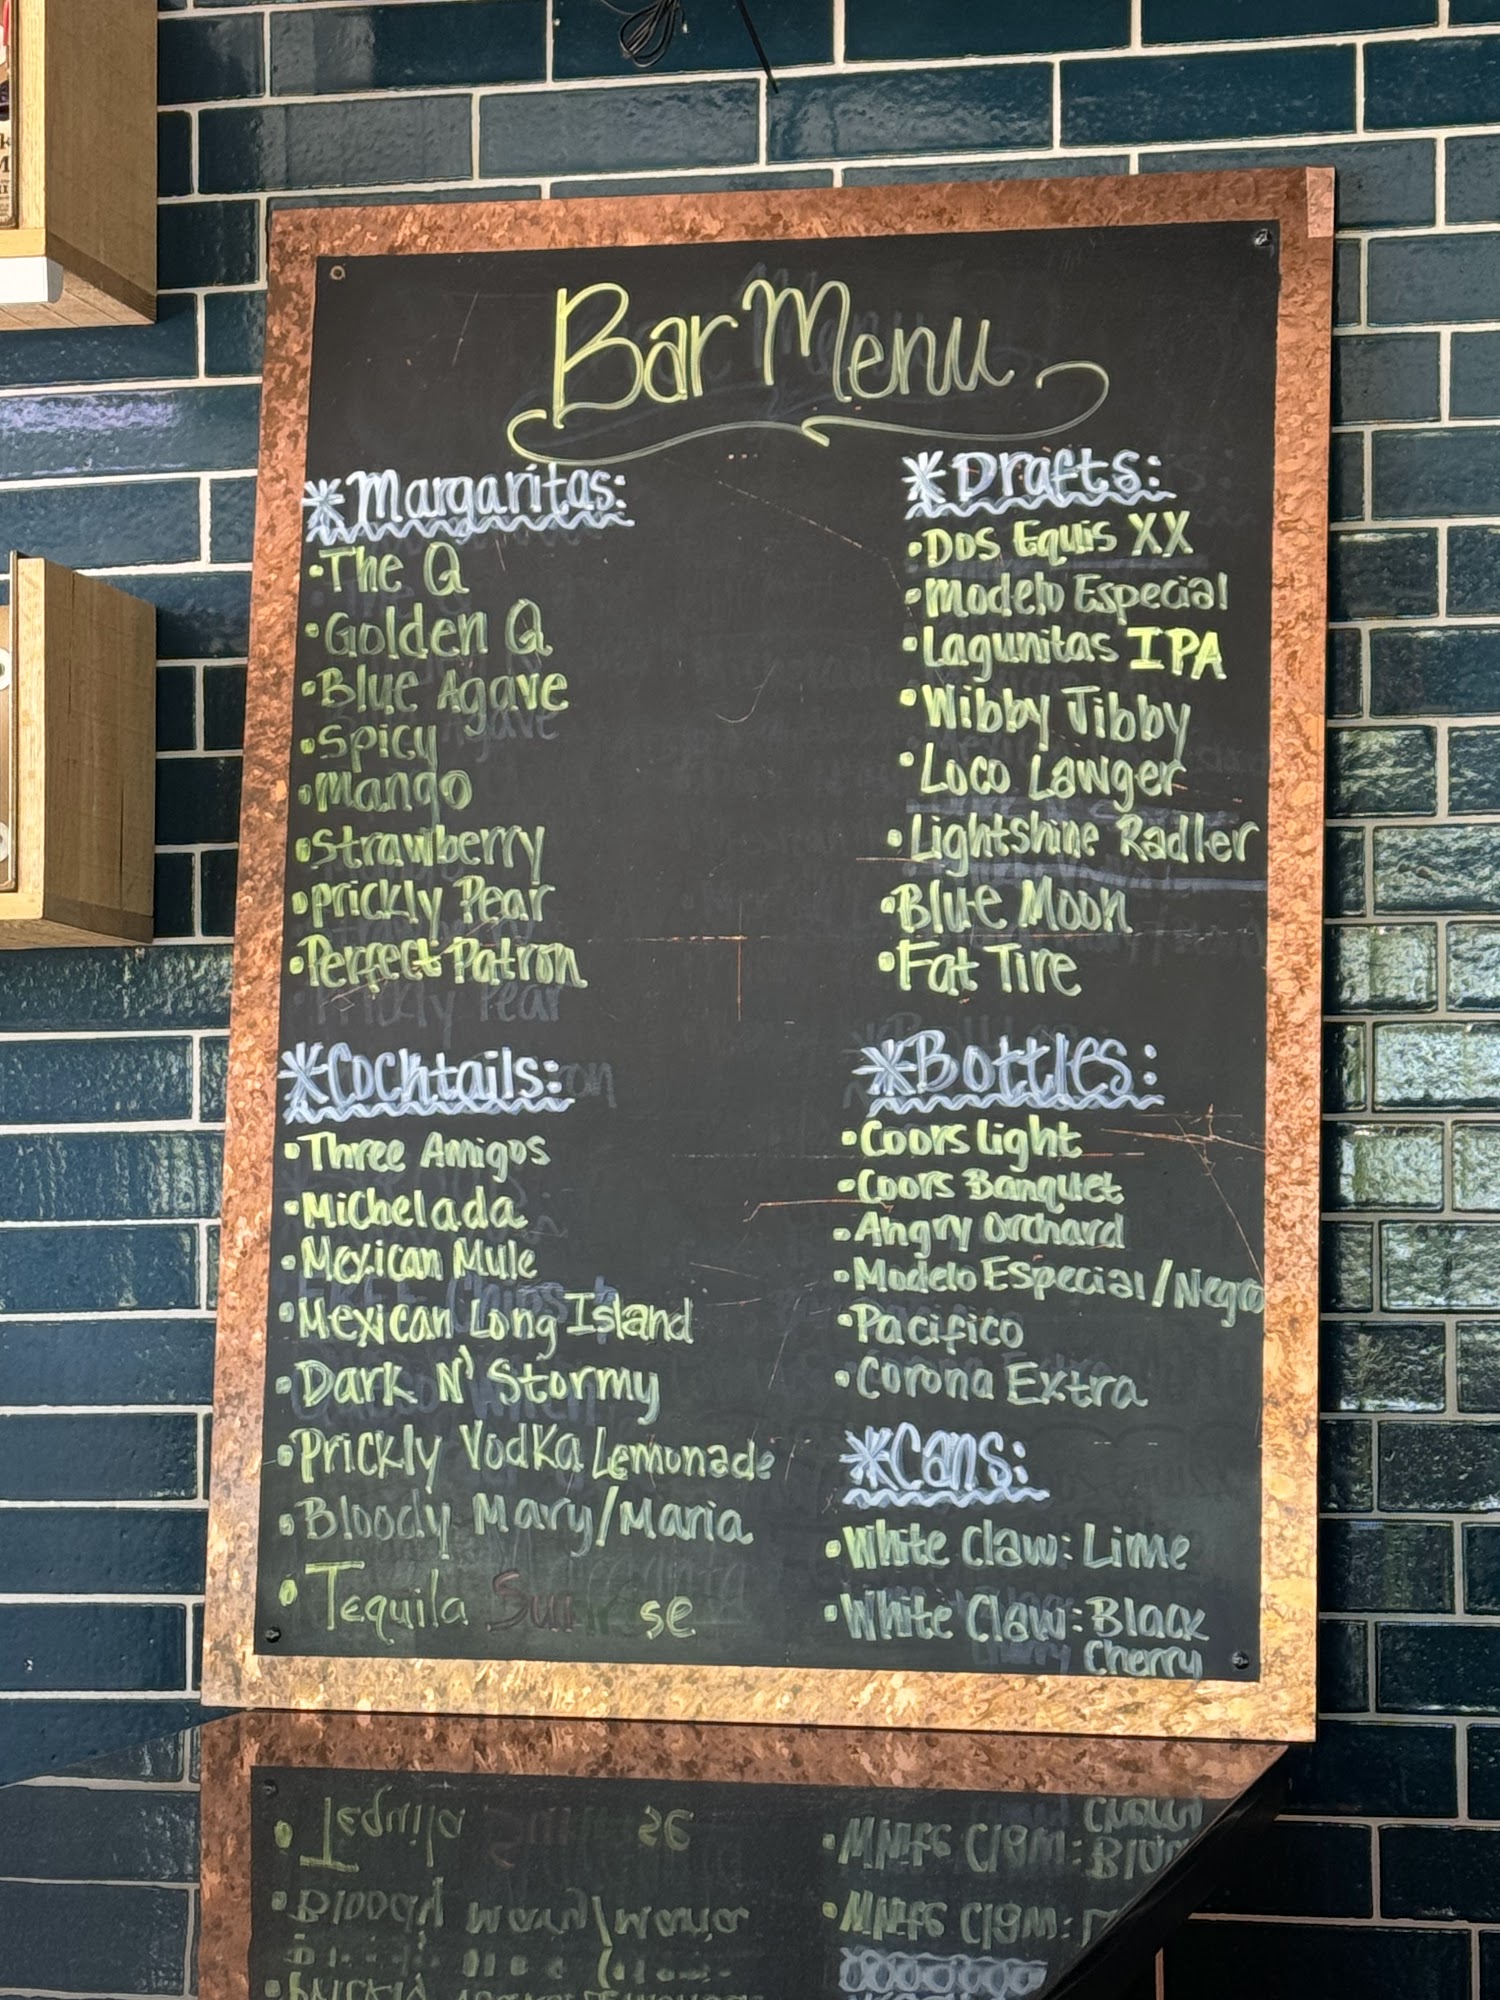 Bar Menu
*Margaritas:
•The Q
•Golden Q
•Blue Agave
•Spicy
•Mango
•Strawberry
•Prickly Pear
•Perfect Patron
*Cocktails:
•Three Amigos
•Michelada
•Mexican Mule
•Mexican Long Island
•Dark N' Stormy
•Prickly Vodka Lemonade
•Bloody Mary/Maria
•Tequila Sun se
*Drafts:
•Dos Equis XX
•Modelo Especial
•Lagunitas IPA
•Wibby Jibby
•Loco Lawger
•Lightshine Radler
•Blue Moon
•Fat Tire
*Bottles:
•Coors Light
•Coors Banquet
•Angry Orchard
•Modelo Especial/Negro
•Pacifico
•Corona Extra
*Cans:
•White Claw: Lime
•White Claw: Black
Cherry